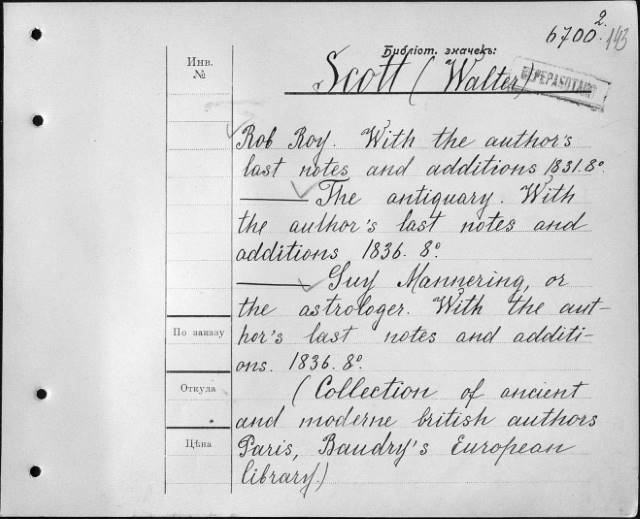 6700 2. 143
Библіот. значекъ:
Scott (Walter)
ПЕРЕРАБОТАНО
Инв.
№
Rob Roy. With the author's
last notes and additions 1831. 8°.
—— The antiquary. With
the author's last notes and
additions 1836. 8°.
—— Guy Mannering, or
the astrologer. With the aut-
hor's last notes and additi-
ons. 1836. 8°.
(Collection of ancient
and moderne british authors
Paris, Baudry's European
library.)
По заказу
Откуда
Цѣна